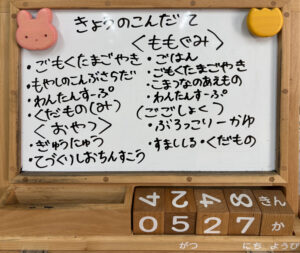 きょうのこんだて
・ごもくたまごやき
・もやしのこんぶさらだ
・わんたんすーぷ
・くだもの(みかん)
<おやつ>
・ぎゅうにゅう
・てづくりしおちんすこう
<ももぐみ>
・ごはん
・ごもくたまごやき
・こまつなのあえもの
・わんたんすーぷ
(ごごしょく)
・ぶろっこりーかゆ
・すましじる・くだもの
4 2 4 8 きん
0 5 2 7 か
がつ にち ようび